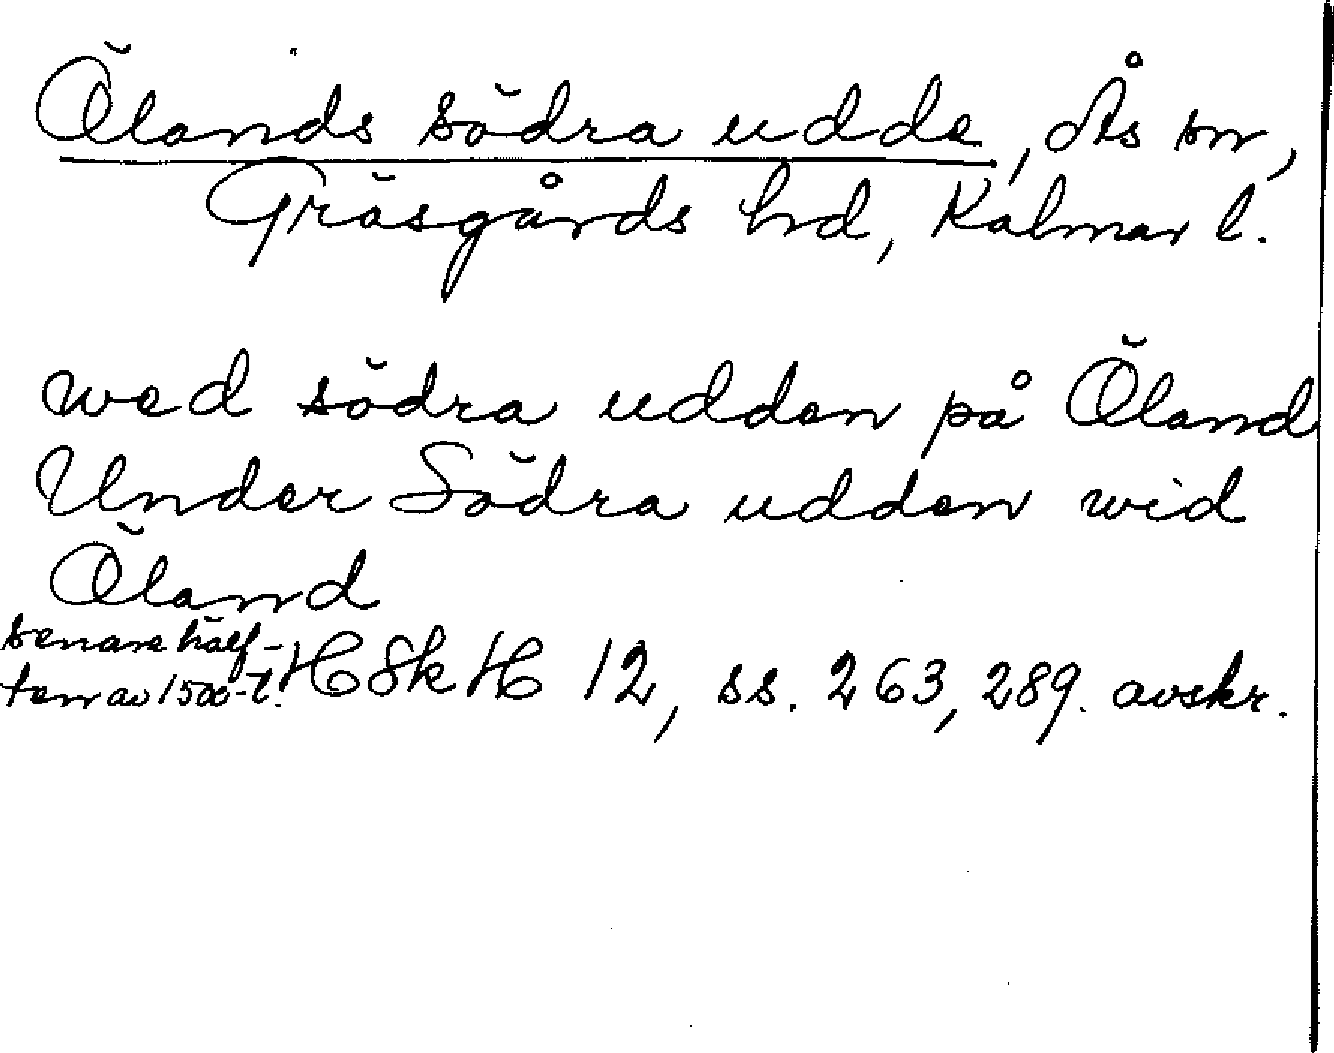 Ölands södra udde, Ås sn,
Gräsgårds hd, Kalmar l.
wed södra udden på Öland
Under Södra udden wid
Öland
senare hälf-
ten av 1500-t. HSkH 12, ss. 263, 289. avskr.